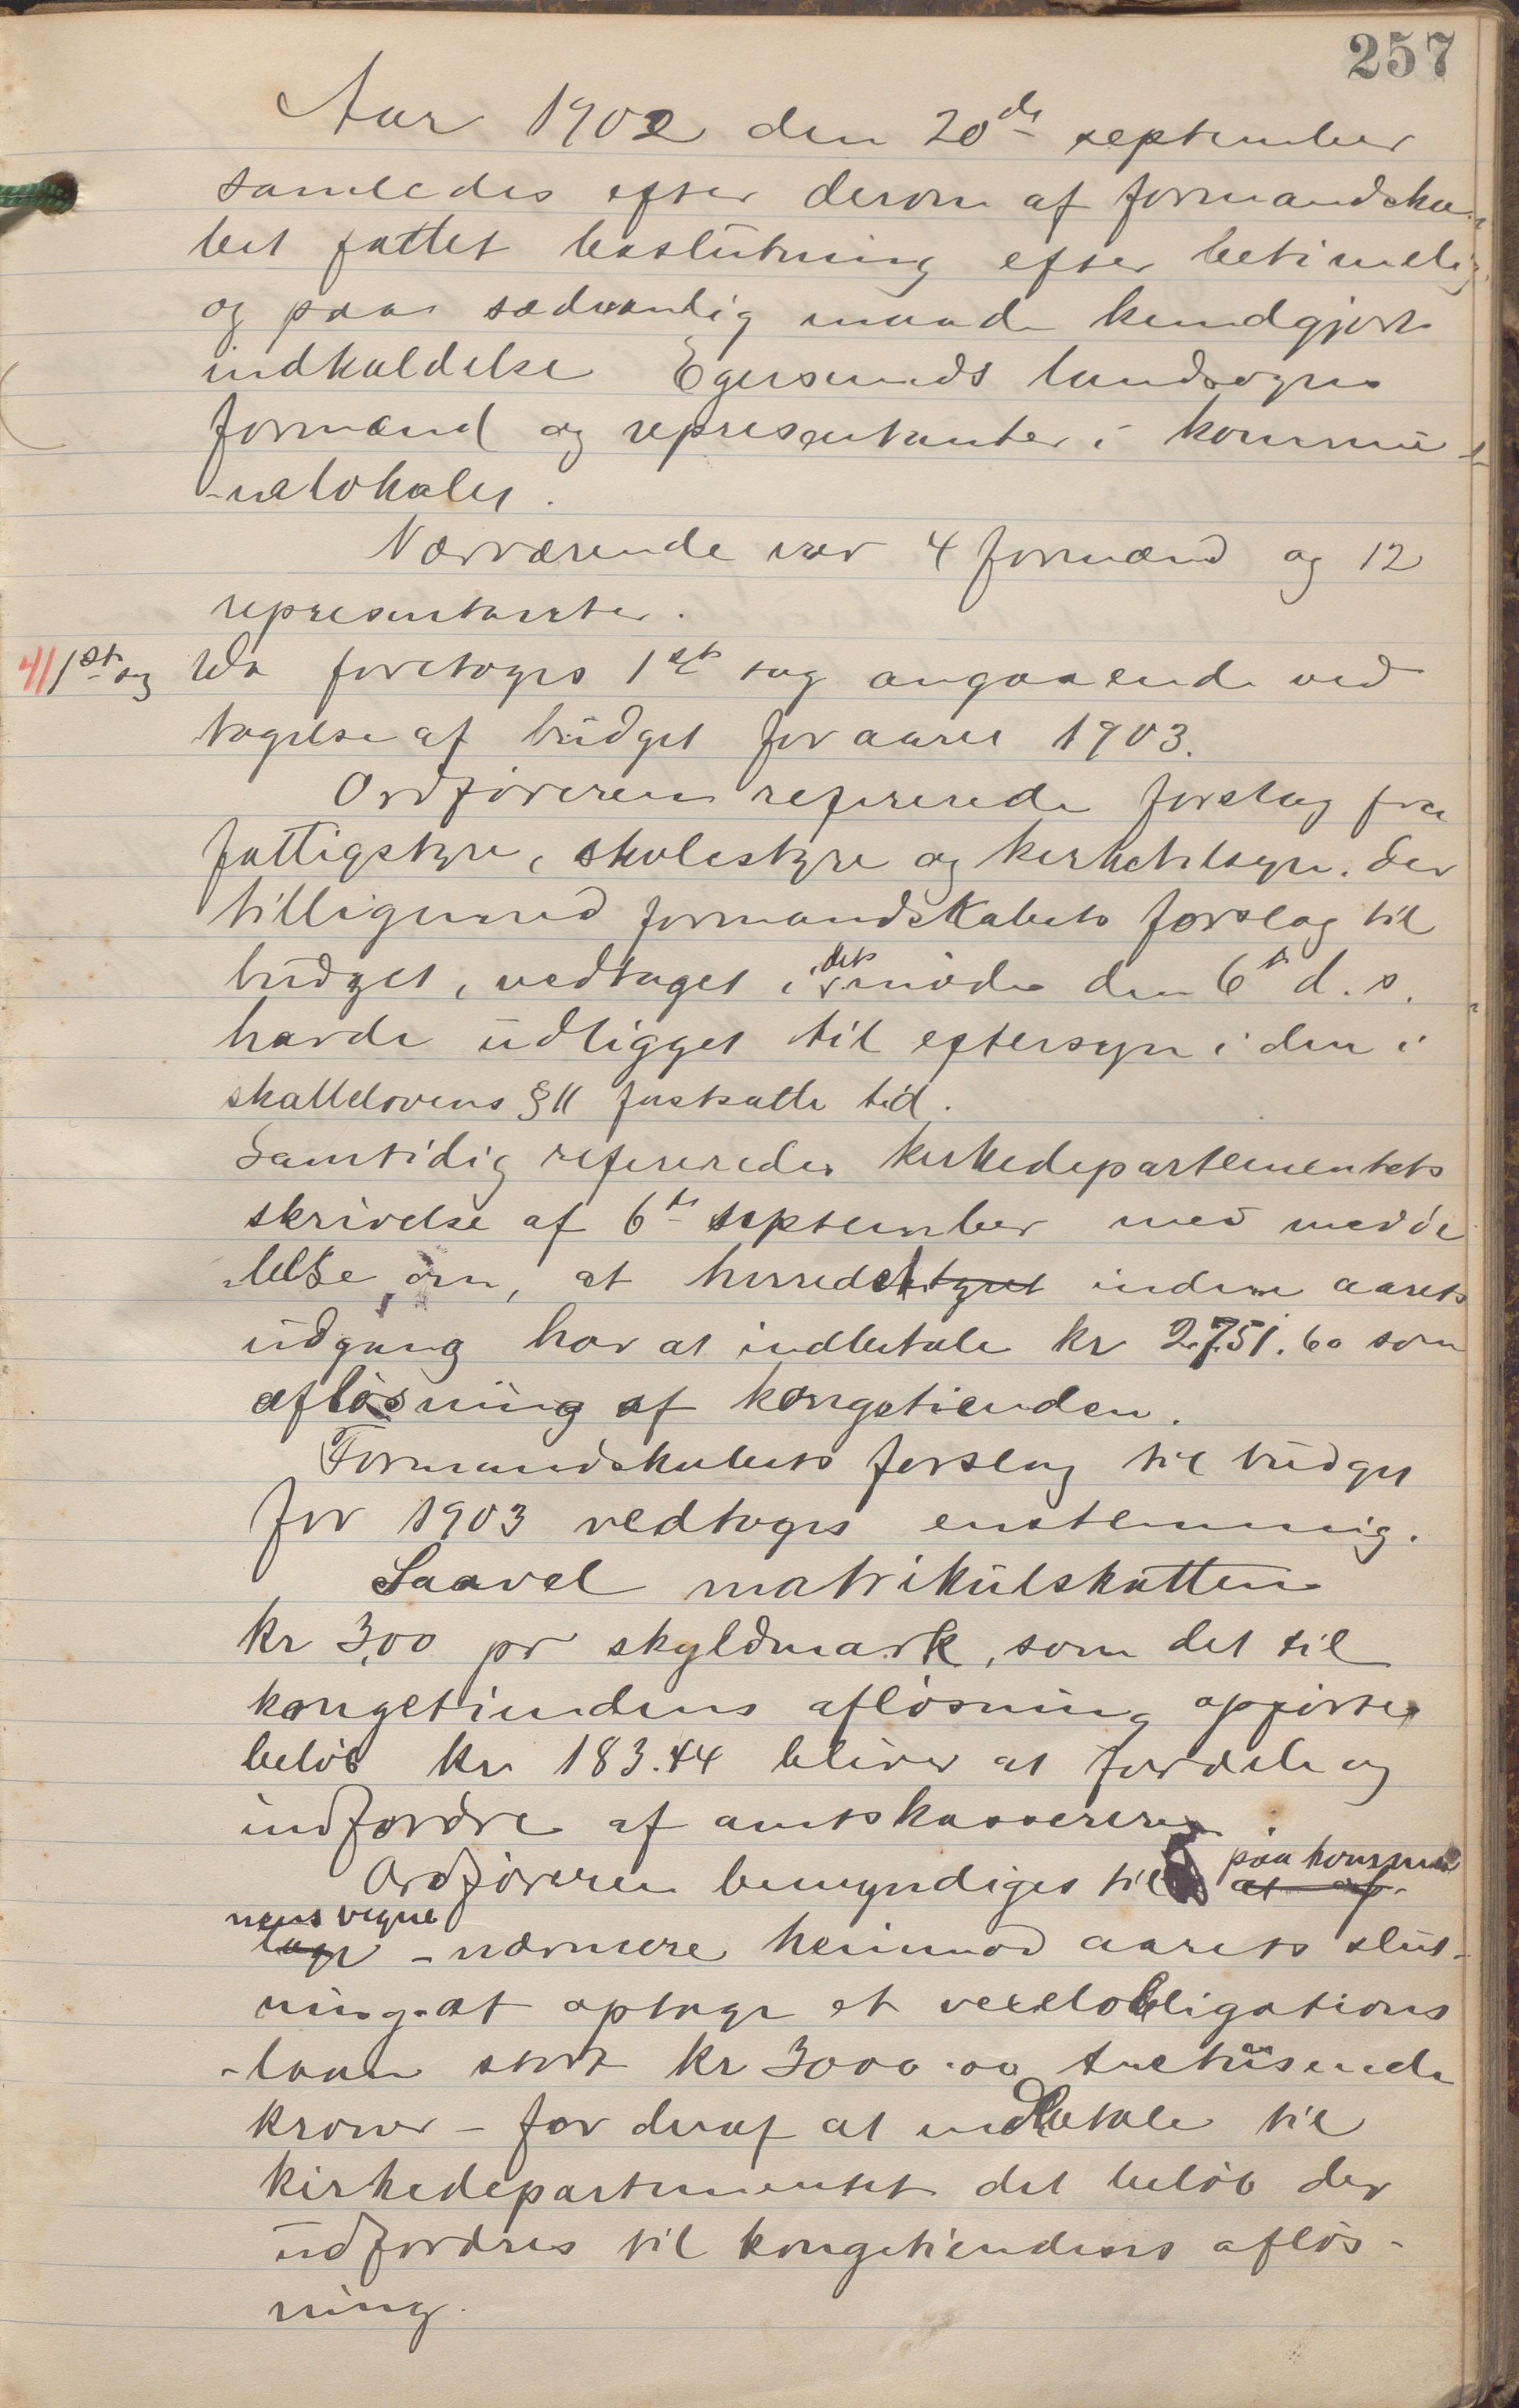 257
Aar 1902 den 20de september
samledes efter derom af formandska-
bet fattet beslutning efter betimelig
og paa sædvanlig maade kundgjort
indkaldelse Egersunds landsogns
formænd og representanter i kommu-
-nelokalet.
Nærværende var 4 formænd og 12
representanter.
4/ 1ste sag Da foretoges 1ste sag angaaende ved
tagelse af budget for aaret 1903.
Ordføreren refererede forslag fra
fattigstyre, skolestyre og kirketilsyn, der
tilligemed formandskabets forslag til
budget, vedtaget i dets møde den 6te d. s.
havde udligget til eftersyn i den i
skattelovens § 11 fastsatte tid.
Samtidig refereredes kirkedepartementets
skrivelse af 6te september med medde
-lelse om, at herredstyret inden aarets
udgang har at indbetale kr 2751.60 som
afløsning af kongetienden.
Formandskabets forslag til budget
for 1903 vedtoges enstemmig.
Saavel matrikulskatten
kr 3,00 pr skyldmark, som det til
kongetiendens afløsning opførte
beløb kr 183.44 bliver at fordele og
indfordre af amtskassereren.
Ordføreren bemyndiges til paa kommu
at op-
nens vegne
tage - nærmere henimod aarets slut-
ning at optage et vexelobligations
-laan stort kr 3000.00 tretusende
kroner - for deraf at indbetale til
kirkedepartementet det beløb der
udfordres til kongetiendens afløs-
ning.